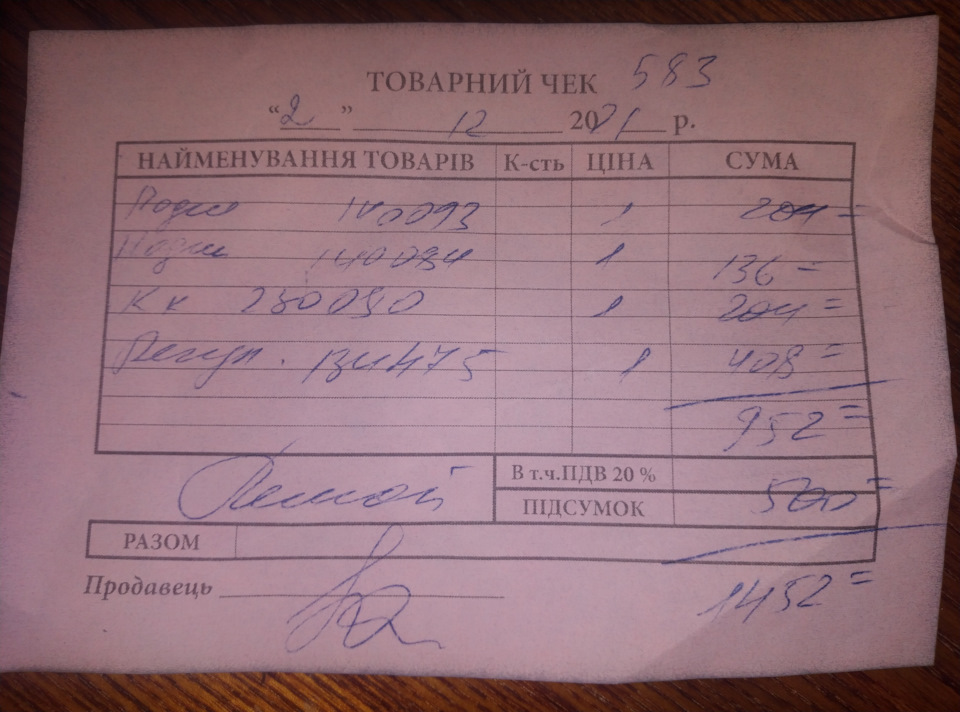 ТОВАРНИЙ ЧЕК 583
“2” 12 2021 р.
НАЙМЕНУВАННЯ ТОВАРІВ К-сть ЦІНА СУМА
140093 1 204=
140094 1 136=
КК 280090 1 204=
1 408=
952=
В т.ч.ПДВ 20 % 500=
ПІДСУМОК
РАЗОМ
Продавець 1452=